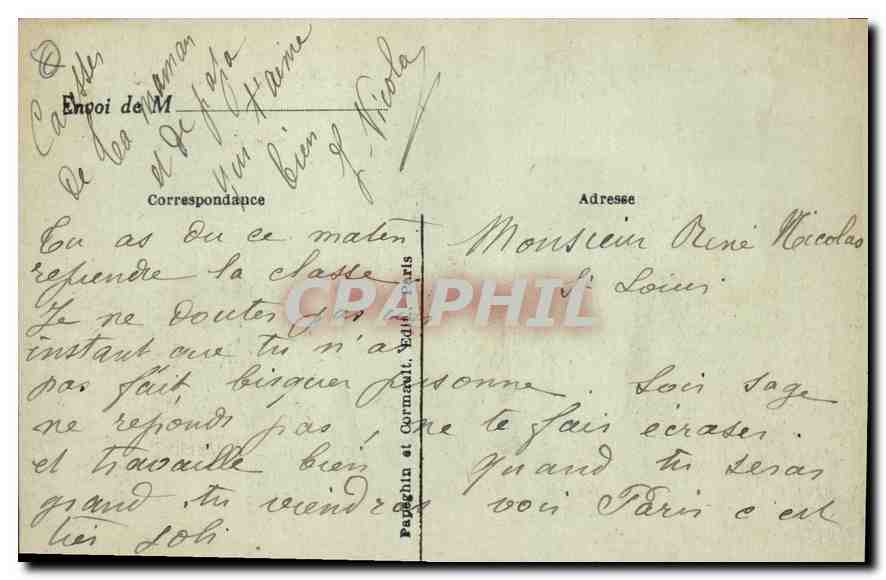 Caresses
de ta maman
et de papa
qui t'aime
bien
Nicolas
Envoi de M
Correspondance
Adresse
Tu as du ce maten
reprendre la classe
Je ne doutes pas un
instant que tu n'as
pas fait bisquer personne. Sois sage
ne réponds pas, ne te fais écraser.
et travaille bien quand tu seras
grand, tu viendras voir Paris c'est
très joli
Monsieur René Nicolas
St Louis
Papeghin et Cormault, Edit. Paris
CPAPHIL